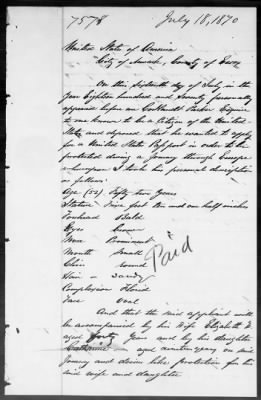 7578
July 18, 1870
United State of America
City of Newark, County of Essex
On this sixteenth day of July in the
Year Eighteen hundred and Seventy personally
appeared before me Cortlandt Parker Esquire
to me known to be a Citizen of the United
State and deposed that he wanted to apply
for a United State Passport in order to be
protected during a Journey through Europe
I took his personal description
as follows:
Age (52) Fifty two Years
Stature Five feet Ten and one half inches
Forehead Bald
Eyes
Nose Prominent
Mouth Small
Chin round
Hair Sandy
Complexion Florid
Face Oval
Paid
And that the said applicant will
be accompanied by his Wife Elizabeth W.
aged forty Years and by his daughter
Catharine aged on said
Journey and desires like protection for his
said wife and daughter